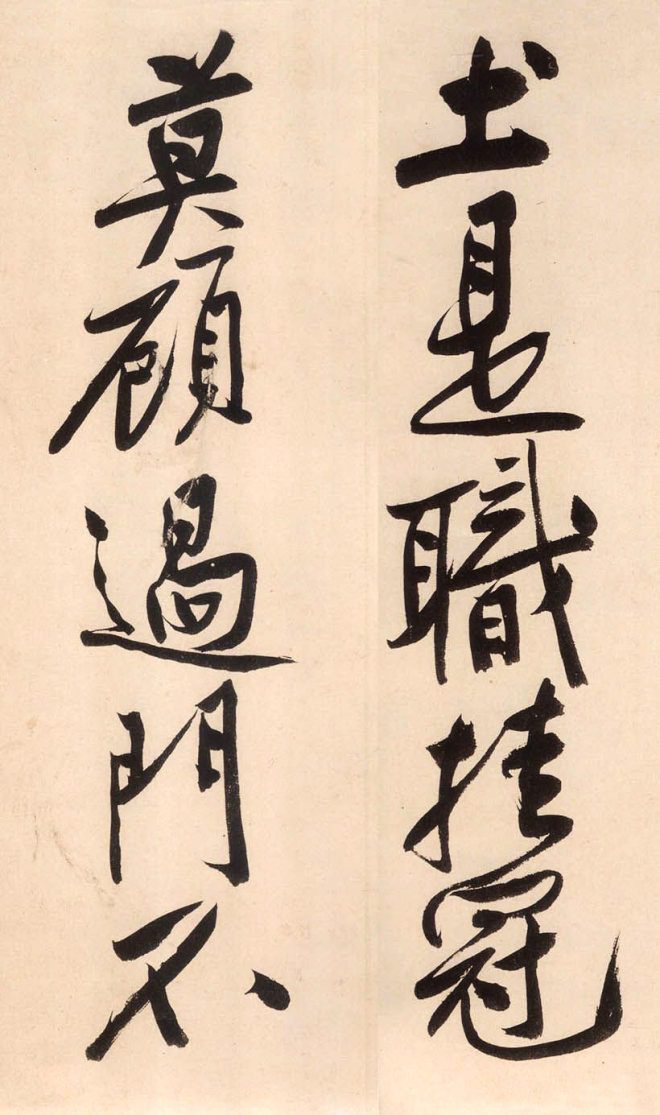 土是職挂冠
莫顧過門不